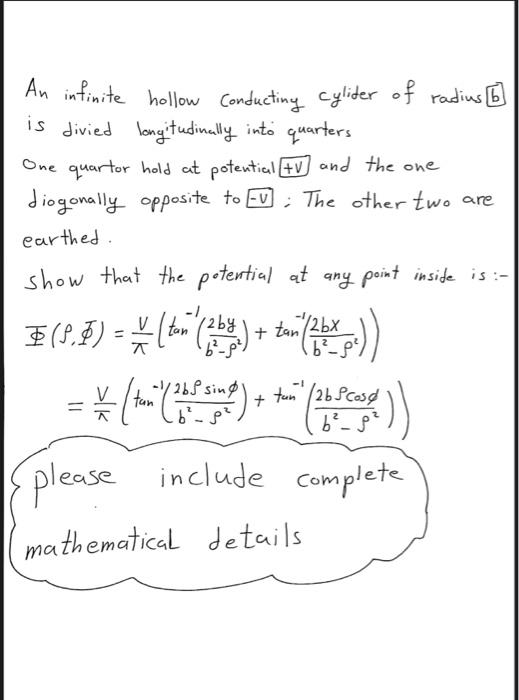 An infinite hollow conducting cylider of radius b
is divied longitudinally into quarters
One quartor hold at potential +V and the one
diogonally opposite to -V ; The other two are
earthed.
show that the potential at any point inside is :-
Φ(ρ,Φ) = V/π (tan⁻¹(2by/(b²-ρ²)) + tan⁻¹(2bx/(b²-ρ²)))
= V/π (tan⁻¹(2bρ sinφ/(b²-ρ²)) + tan⁻¹(2bρ cosφ/(b²-ρ²)))
please include complete
mathematical details